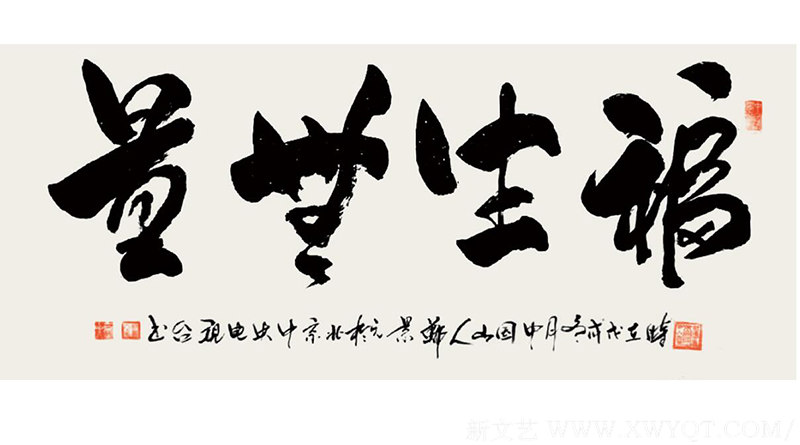 福生無量
時在戊戌冬月中国山人景元於北京中央电视台书
新文艺 WWW.XWYQT.COM/